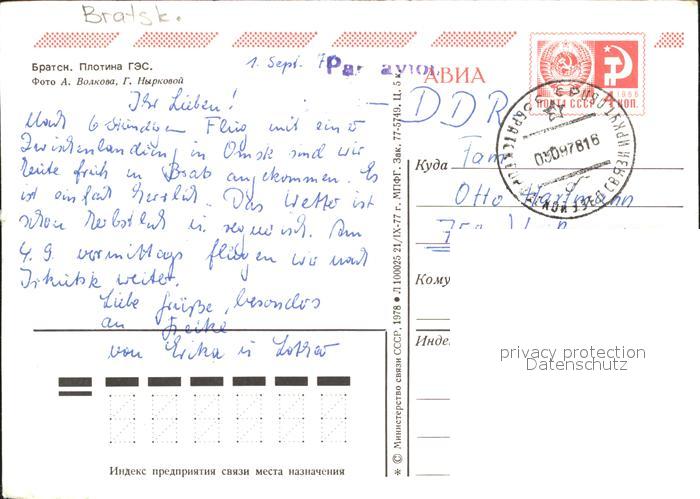 Bratsk.
Братск. Плотина ГЭС.
Фото А. Волкова, Г. Нырковой
1. Sept. 7
Par avion
АВИА
ПОЧТА СССР КОП.
DDR
Ihr Lieben!
Nach 6 stündigem Flug mit einer
Zwischenlandung in Omsk sind wir
heute früh in Brats angekommen. Es
ist einfach herrlich. Das Wetter ist
schon herbstlich u. regnerisch. Am
4. 9. vormittags fliegen wir nach
Irkutsk weiter.
Liebe Grüße, besonders
an Heike
von Erika u Lothar
Куда Fam
Otto Hartmann
Кому
Инде
privacy protection
Datenschutz
Индекс предприятия связи места назначения
* © Министерство связи СССР, 1978 • Л 100025 21/IX-77 г., МПФГ. Зак. 77-5745. Ц. 5 к.